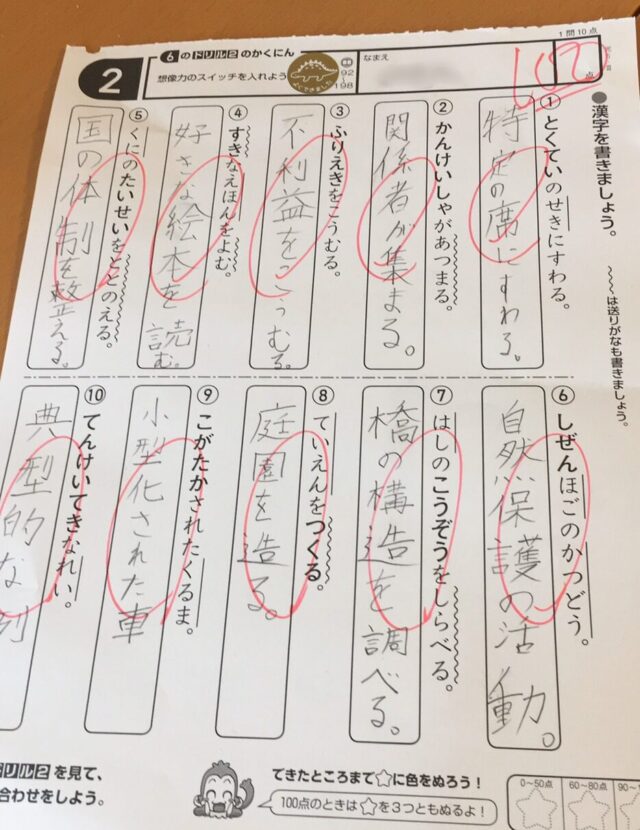 2
6のドリル2のかくにん
想像力のスイッチを入れよう
92
198
なまえ
1問10点
100
点
●漢字を書きましょう。
〰は送りがなも書きましょう。
①とくていのせきにすわる。
特定の席にすわる。
②かんけいしゃがあつまる。
関係者が集まる。
③ふりえきをこうむる。
不利益をこうむる。
④すきなえほんをよむ。
好きな絵本を読む。
⑤くにのたいせいをととのえる。
国の体制を整える。
⑥しぜんほごのかつどう。
自然保護の活動。
⑦はしのこうぞうをしらべる。
橋の構造を調べる。
⑧ていえんをつくる。
庭園を造る。
⑨こがたかされたくるま。
小型化された車
⑩てんけいてきなれい。
典型的な例
ドリル2を見て、
合わせをしよう。
できたところまで☆に色をぬろう！
100点のときは☆を3つともぬるよ！
0〜50点
60〜80点
90〜